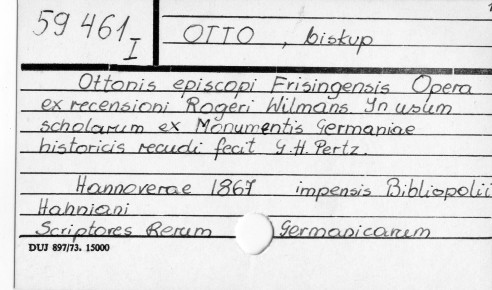 59 461 I
OTTO, biskup
Ottonis episcopi Frisingensis Opera
ex recensioni Rogeri Wilmans. In usum
scholarum ex Monumentis Germaniae
historicis recudi fecit G.H. Pertz.
Hannoverae 1867 impensis Bibliopolii
Hahniani
Scriptores Rerum Germanicarum
DUJ 897/73. 15000